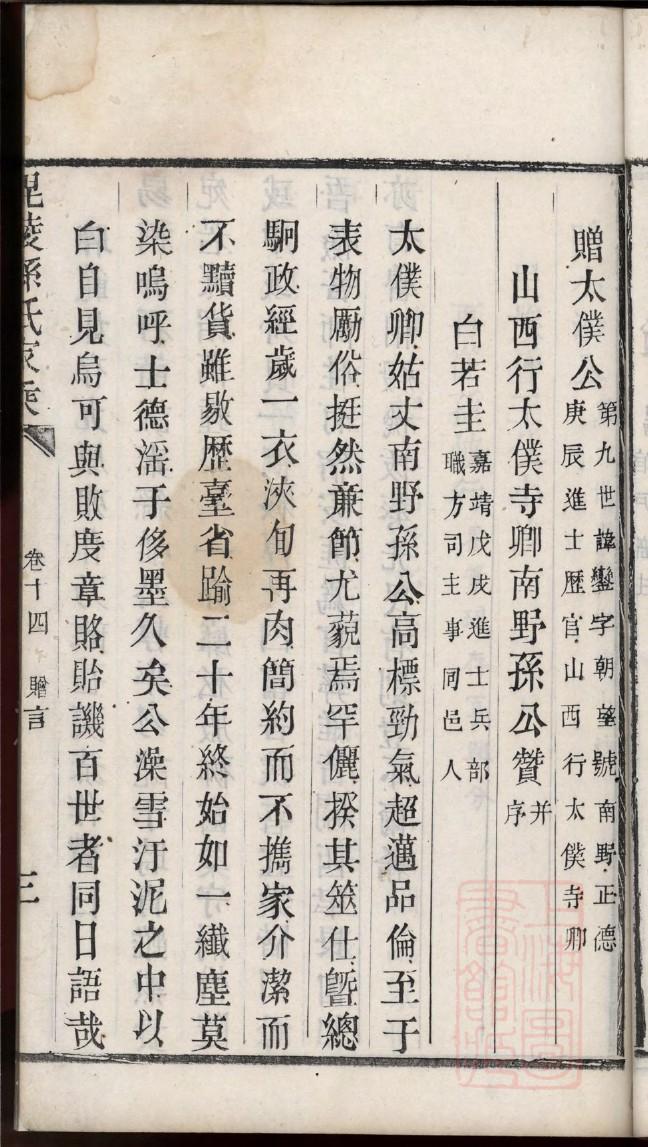 贈太僕公
第九世諱鑾字朝望號南野正德
庚辰進士歷官山西行太僕寺卿
山西行太僕寺卿南野孫公贊并序
白若圭
嘉靖戊戌進士兵部
職方司主事同邑人
太僕卿姑丈南野孫公高標勁氣超邁品倫至于
表物勵俗挺然亷節尤藐焉罕儷揆其筮仕曁總
駉政經歲一衣浹旬再肉簡約而不擕家介潔而
不黷貨雖敭歷臺省踰二十年終始如一纎塵莫
染嗚呼士德滛于侈墨久矣公澡雪汙泥之中以
白自見烏可與敗度章賂貽譏百世者同日語哉
毘陵孫氏家乘
卷十四 贈言
三
上海圖書館藏